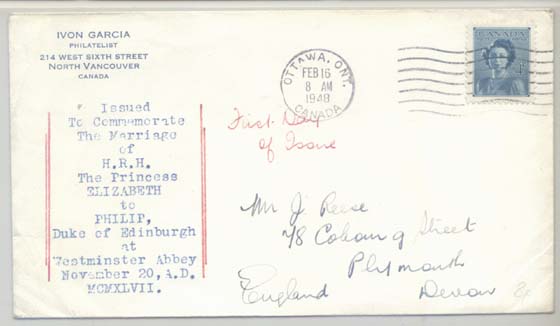 IVON GARCIA
PHILATELIST
214 WEST SIXTH STREET
NORTH VANCOUVER
CANADA
OTTAWA, ONT.
FEB 16
8 AM
1948
CANADA
CANADA
First Day
of Issue
Issued
To Commemorate
The Marriage
of
H.R.H.
The Princess
ELIZABETH
to
PHILIP,
Duke of Edinburgh
at
Westminster Abbey
November 20, A.D.
MCMXLVII.
Mr J. Reese
78 Cobourg Street
Plymouth
England Devon